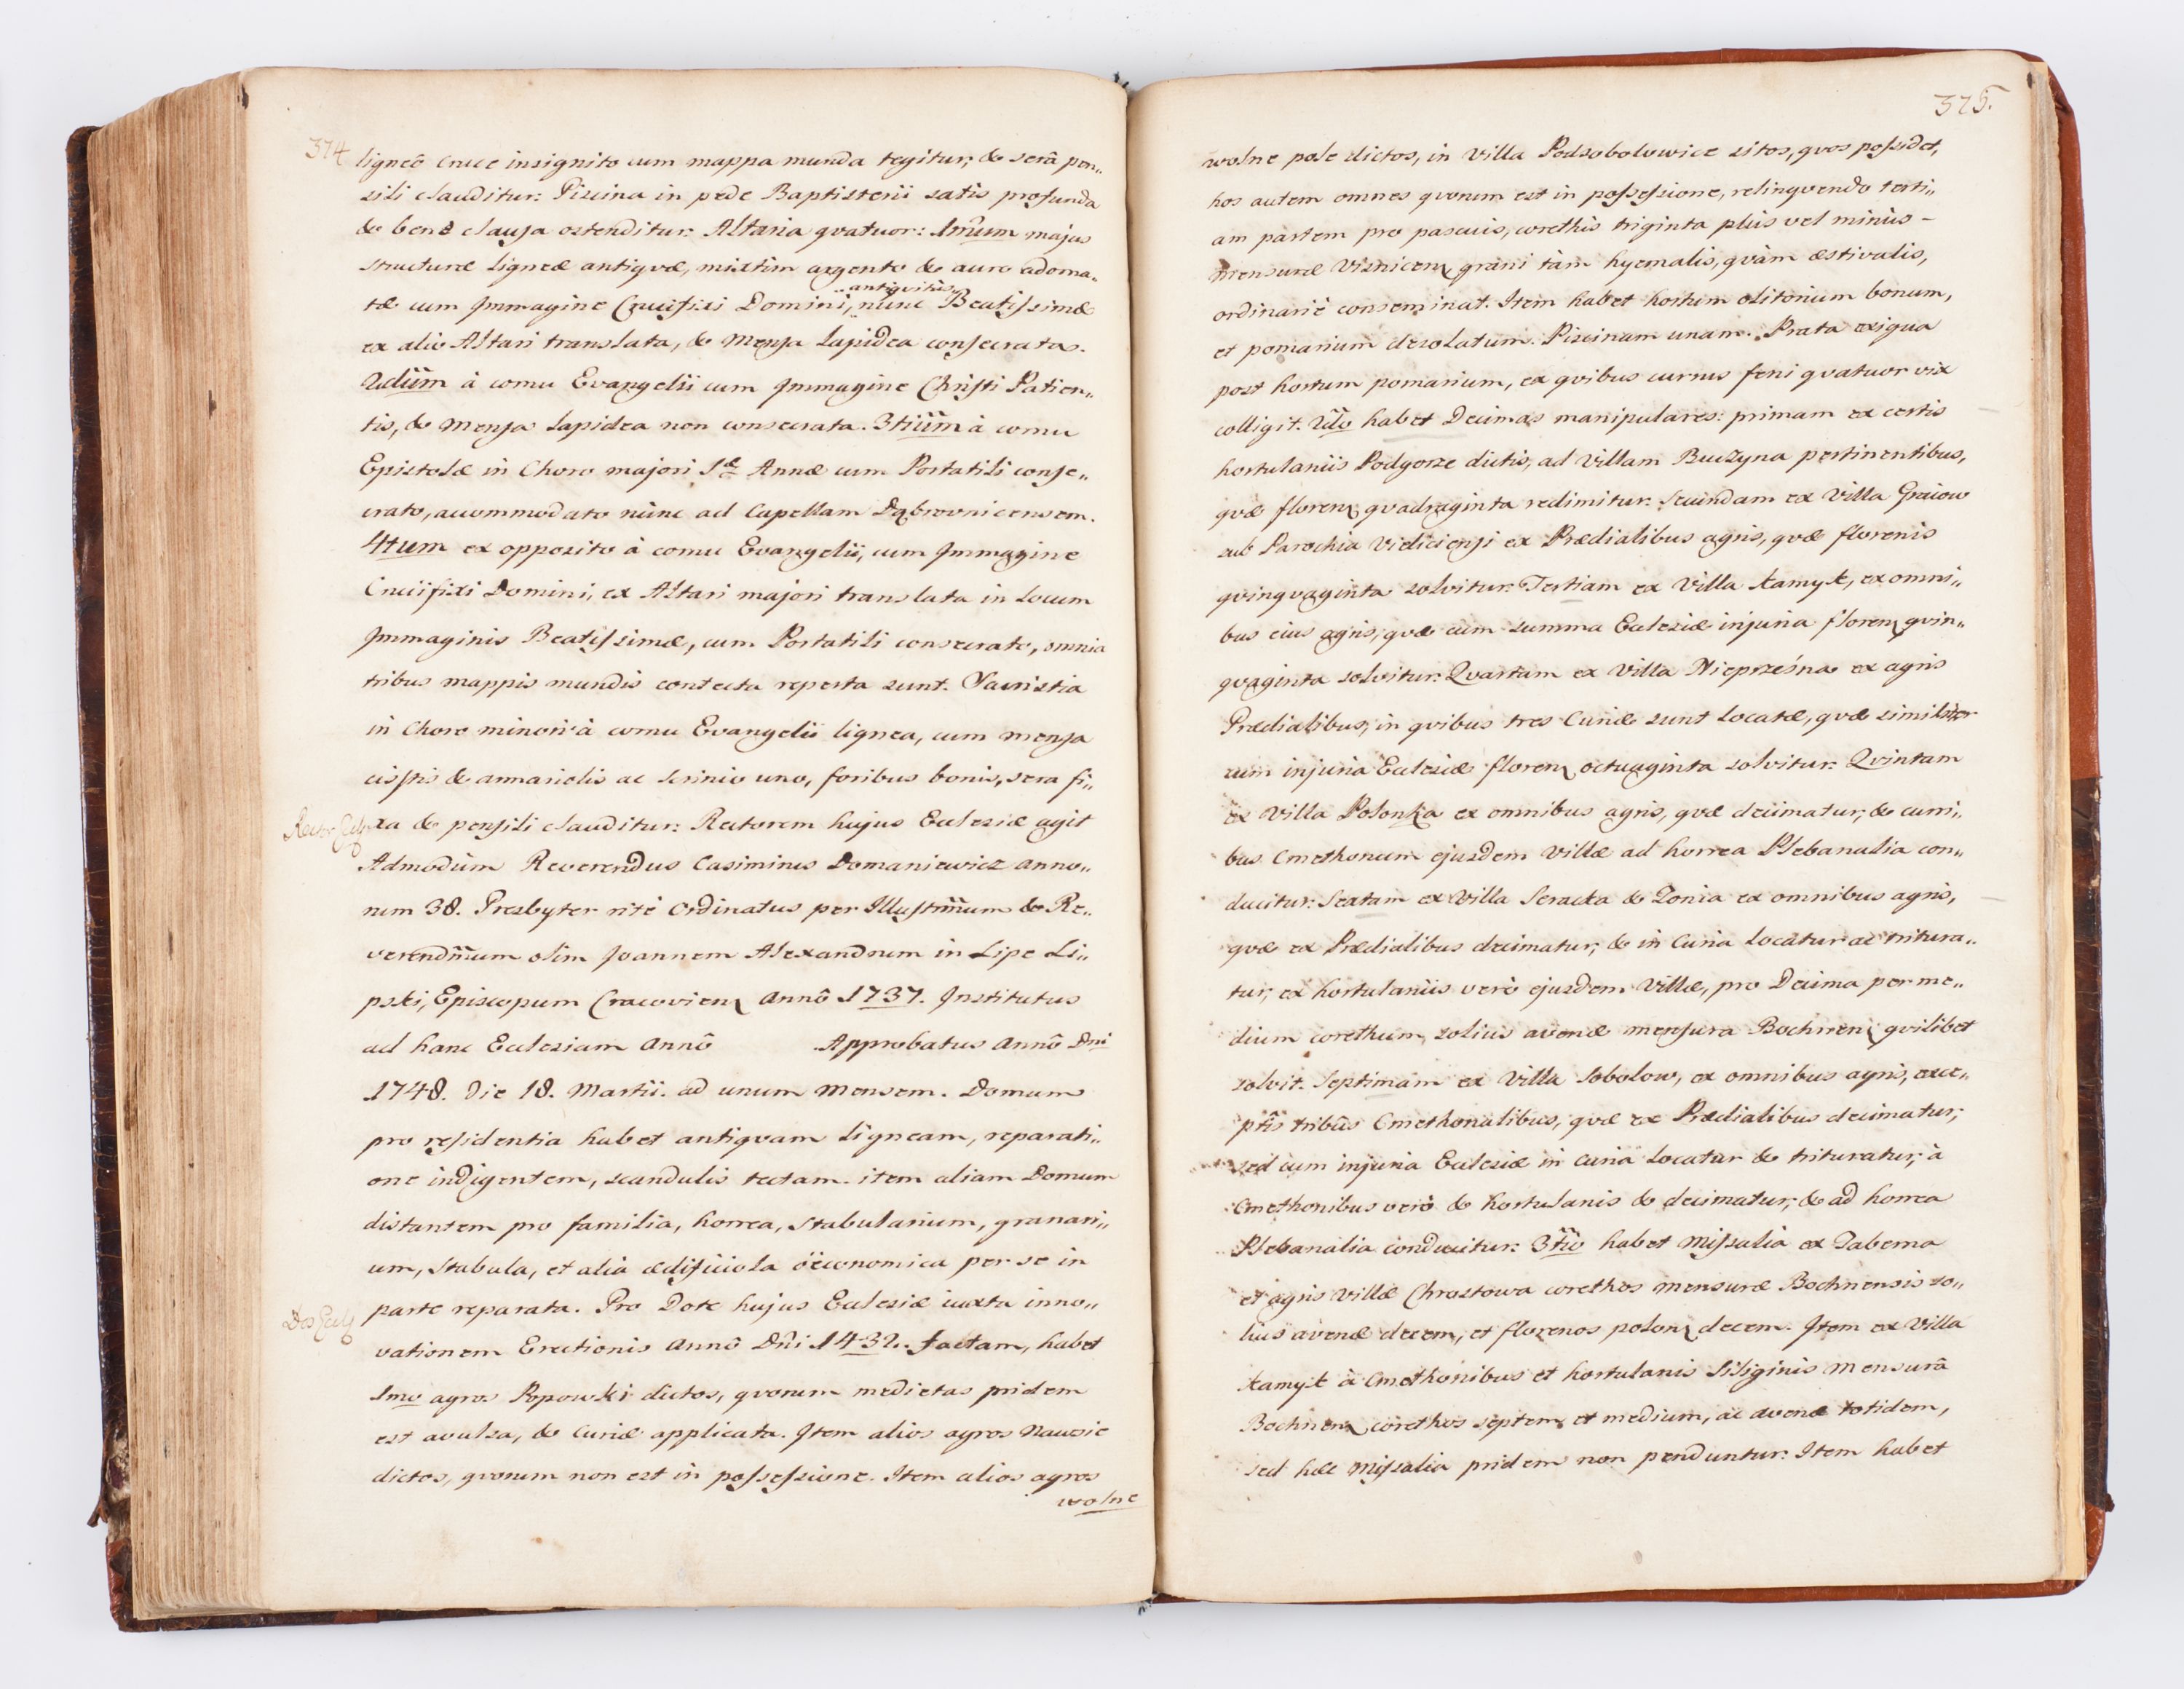 374
ligneô Cruce insignito cum mappa munda tegitur, & serâ pen„
sili clauditur: Piscina in pede Baptisterii satis profunda
& benè clausa ostenditur: Altaria qvatuor: 1mum majus
structuræ Ligneæ antiqvæ, mixtim argento & auro adorna„
antiqvitùs
tæ cum Immagine Crucifixi Domini, nunc Beatissimæ
ex alio Altari translata, & Mensa Lapidea consecratas.
2dum à cornu Evangelii cum Immagine Christi Patien„
tis, & Mensa Lapidea non consecrata. 3tium à cornu
Epistolæ in Choro majori Sæ Annæ cum Portatili conse„
crato, accommodato nùnc ad Capellam Dąbrovnicensem.
4tum ex opposito à cornu Evangelii, cum Immagine
Crucifixi Domini, ex Altari majori translata in Locum
Immaginis Beatissimæ, cum Portatili consecrato, omnia
tribus mappis mundis contecta reperta sunt. Sacristia
in Choro minori à cornu Evangelii lignea, cum mensa
cistis & armariolis ac scrinio uno, foribus bonis, sera fi„
Rector Eccl
xa & pensili clauditur: Rectorem hujus Ecclesiæ agit
Admodùm Reverendus Casimirus Domaniewicz anno„
rum 38. Presbyter ritè Ordinatus per Illustrmum & Re„
verendmum olim Joannem Alexandrum in Lipe Li„
pski, Episcopum Cracovien Annô 1737. Institutus
ad hanc Ecclesiam Annô Approbatus Annô Dni
1748. Die 18. Martii. ad unum Mensem. Domum
pro residentia habet antiqvam Ligneam, reparati„
one indigentem, scandulis tectam. item aliam Domum
distantem pro familia, horrea, stabularium, granari„
um, Stabula, et alia ædificiola öeconomica per se in
Dos Eccl
parte reparata. Pro Dote hujus Ecclesiæ iuxta inno„
vationem Erectionis Annô Dni 1432. factam, habet
1mo agros Popowski dictos, qvorum medietas pridem
est avulsa, & Curiæ applicata. Item alios agros Nawsie
dictos, qvorum non est in possessione. Item alios agros
wolne
375.
wolne pole dictos, in Villa Podsobolowice sitos, qvos possidet,
hos autem omnes qvorum est in possessione, relinqvendo terti„
am partem pro pascuis, corethis triginta plùs vel minùs –
mensuræ Visnicen grani tàm hyemalis, qvàm æstivalis,
ordinariè conseminat. Item habet hortum olitorium bonum,
et pomarium desolatum. Piscinam unam. Prata exigua
post hortum pomarium, ex qvibus currus feni qvatuor vix
colligit. 2do habet Decimas manipulares: primam ex certis
hortulaniis Podgorze dictis, ad Villam Buczyna pertinentibus,
qvæ floren qvadraginta redimitur: Secundam ex Villa Graiow
sub Parochia Vieliciensi ex Prædialibus agris, qvæ florenis
qvinqvaginta solvitur: Tertiam ex Villa Łamyk, ex omni„
bus eius agris, qvæ cum summa Ecclesiæ injuria floren qvin„
qvaginta solvitur: Qvartam ex Villa Nieprześna ex agris
Prædialibus, in qvibus tres Curiæ sunt Locatæ, qvæ similiter
cum injuria Ecclesiæ floren octuaginta solvitur: Qvintam
ex Villa Polonka ex omnibus agris, qvæ decimatur, & curri„
bus Cmethonum ejusdem Villæ ad horrea Plebanalia con„
ducitur: Sextam ex Villa Seracka & Zonia ex omnibus agris,
qvæ ex Prædialibus decimatur, & in Curia Locatur ac tritura„
tur, ex hortulaniis verò ejusdem Villæ, pro Decima per me„
dium corethum solius avenæ mensura Bochnen qvilibet
solvit. Septimam ex Villa Sobolow, ex omnibus agris, exce„
ptîs tribûs Cmethonalibus, qvæ ex Prædialibus decimatur,
sed cum injuria Ecclesiæ in Curia Locatur & trituratur, à
Cmethonibus verò & hortulanis & decimatur, & ad horrea
Plebanalia conducitur: 3tio habet Missalia ex Taberna
et agris Villæ Chrostowa corethos mensuræ Bochnensis so„
lius avenæ decem, et florenos polon decem. Item ex Villa
Łamyk à Cmethonibus et hortulanis Siliginis Mensurâ
Bochnen corethos septem et medium, ac avenæ totidem,
sed hæc Missalia pridem non penduntur: Item habet